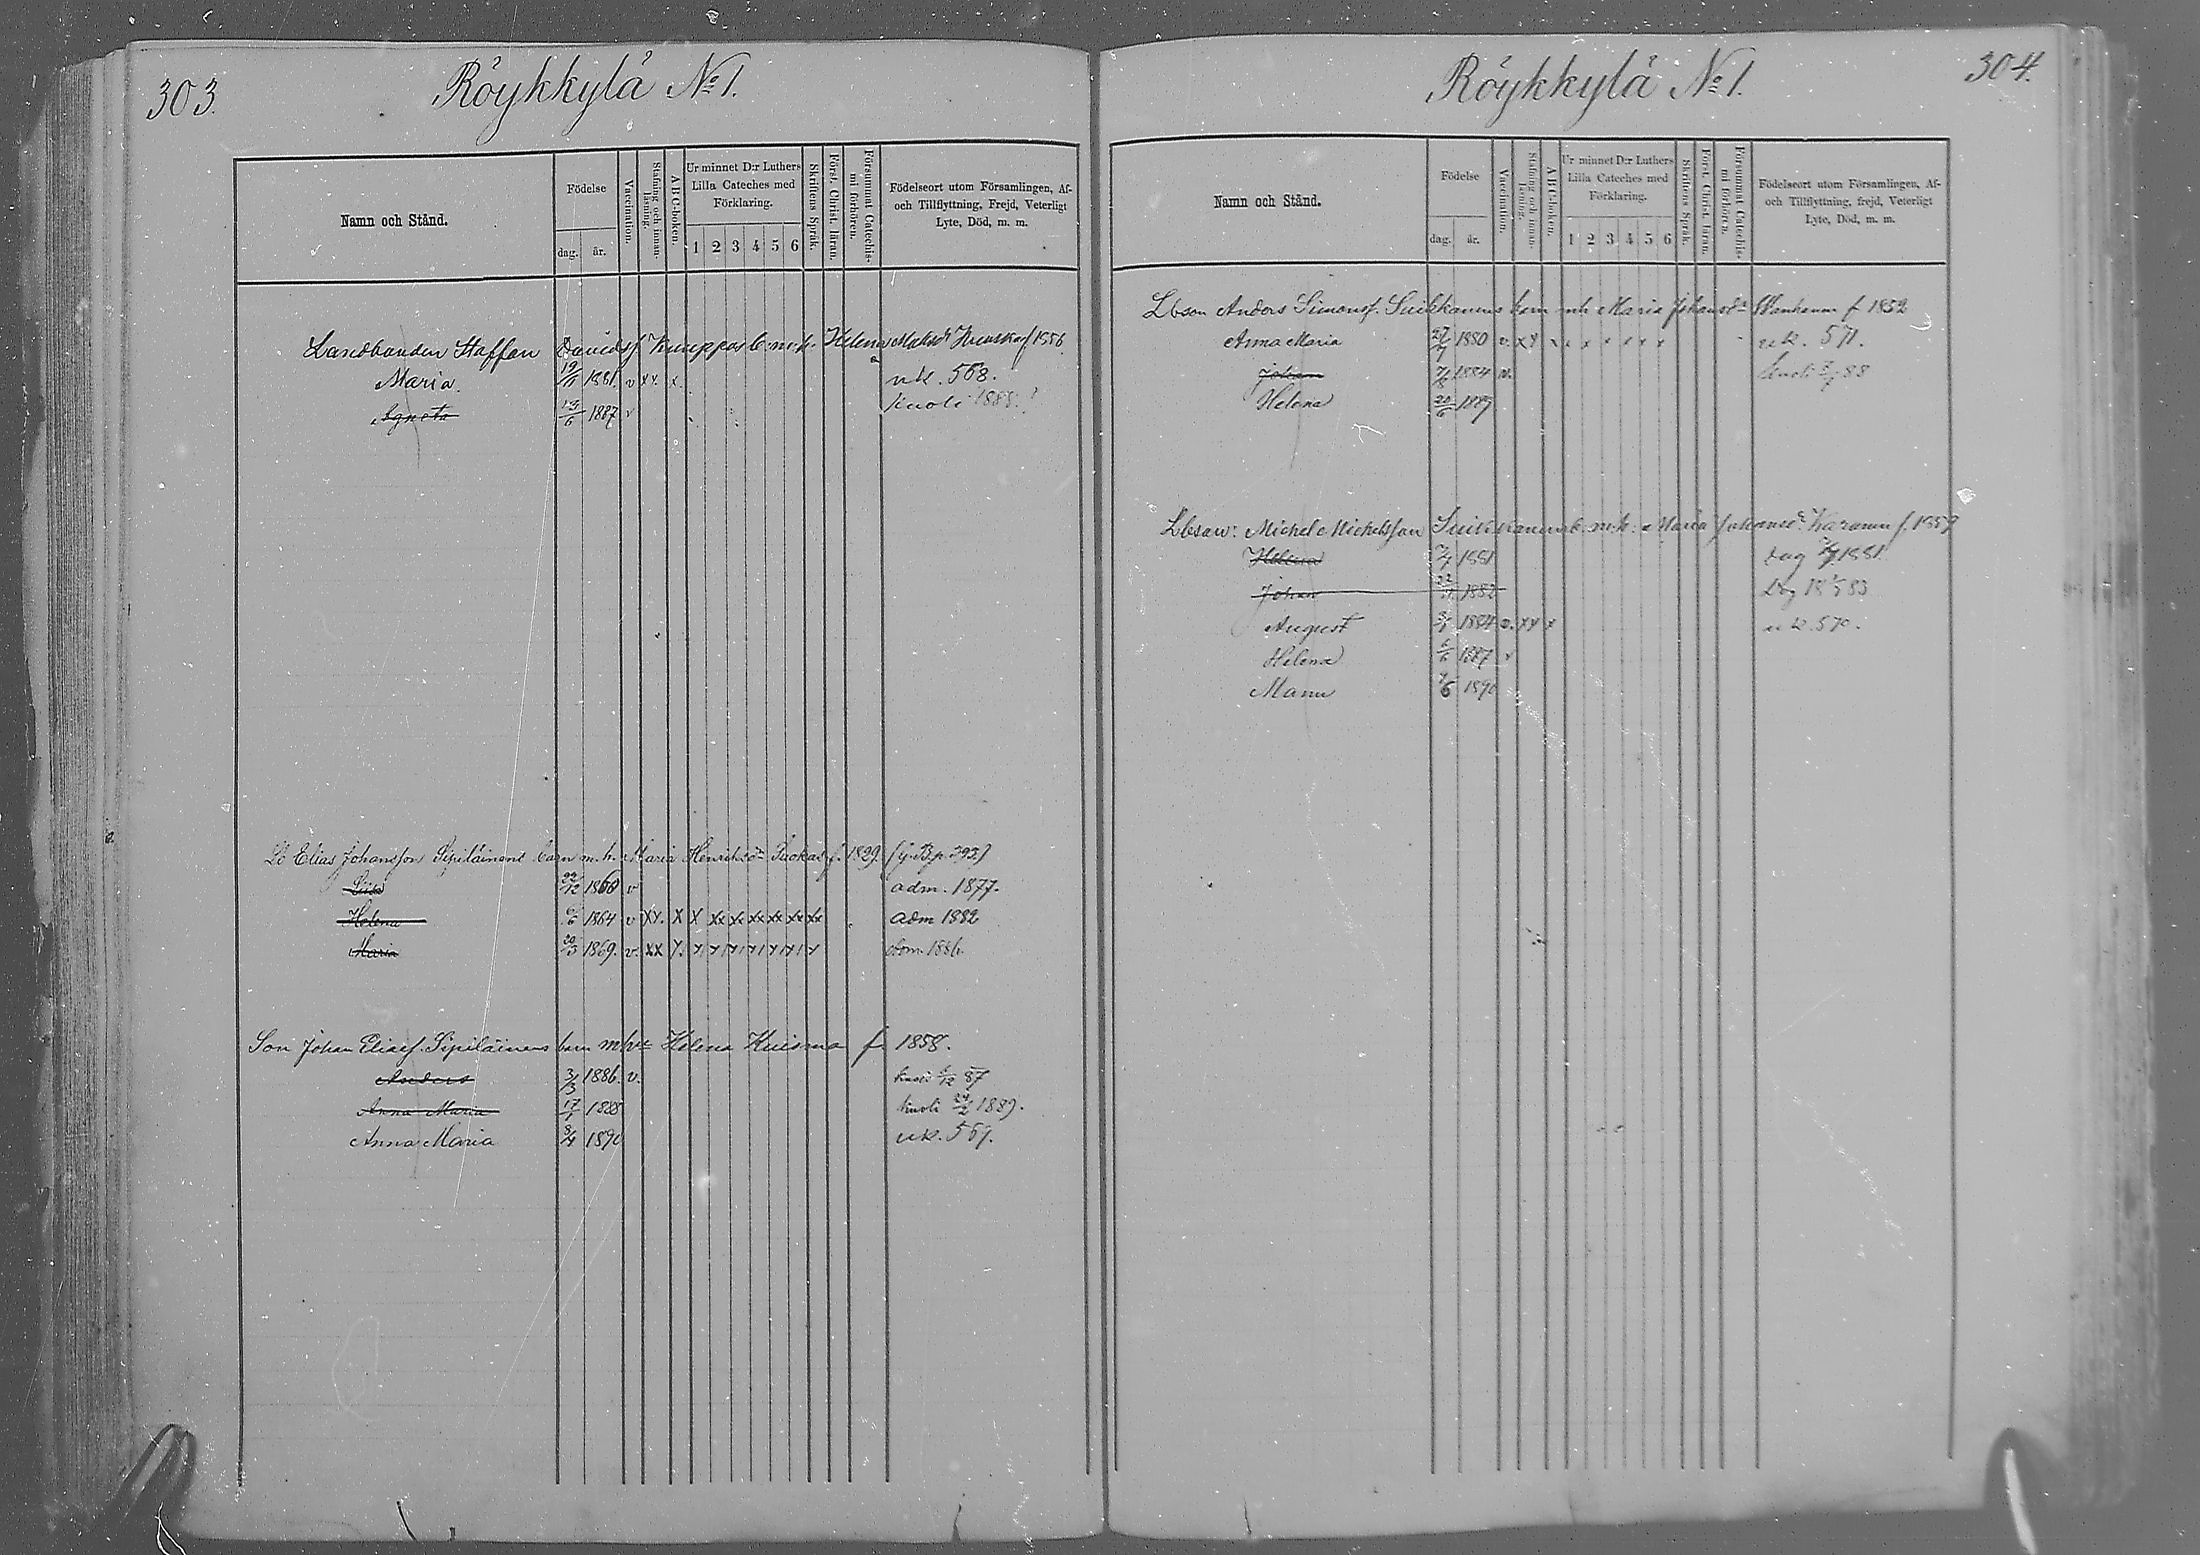 303.
Röykkylä No 1.
Namn och Stånd.
Födelse
dag.
år.
Vaccination.
Stafning och innanläsning.
A B C-boken.
Ur minnet D:r Luthers Lilla Cateches med Förklaring.
1 2 3 4 5 6
Skriftens Språk.
Först. Christ. läran.
Försummat Catechismi förhören.
Födelseort utom Församlingen, Af- och Tillflyttning, Frejd, Veterligt Lyte, Död, m. m.
Landbonden Staffan Davidsf. b. m. h. Helena f 1856.
Maria 19/11 1881 v xx x uk. 568.
Agneta 6 1887 v kuoli 1888.
Lb Elias Johansson Sipiläinens barn m. h. Maria Henriksdr f. 1829.
Liisa 12 1860 v adm. 1877.
Helena 6 1864 v xx. x x xx xx xx xx xx xx adm 1882
Maria 29/3 1869. v. xx x adm. 1886.
Son Johan Eliasf. Sipiläinens barn m. h. Helena Kuisma f. 1858.
Anders 3/3 1886. v. kuoli 12 87
Anna Maria 17/1 1888 kuoli 24/2 1889.
Anna Maria 8/4 1890 uk. 569.
304.
Röykkylä No 1.
Namn och Stånd.
Födelse
dag.
år.
Vaccination.
Stafning och innanläsning.
A B C-boken.
Ur minnet D:r Luthers Lilla Cateches med Förklaring.
1 2 3 4 5 6
Skriftens Språk.
Först. Christ. läran.
Försummat Catechismi förhören.
Födelseort utom Församlingen, Af- och Tillflyttning, frejd, Veterligt Lyte, Död, m. m.
Lbson Anders Simonsf. Suikkanens barn mh Maria Johansdr f 1852
Anna Maria 27/7 1880 v. xx x x x x x x x uk. 571.
Johan 1884 v. kuoli 88
Helena 20/6 1889
Michel Michelsson Suikkanens b. m. h. Maria Johansdr Karanen f. 1857
Helena 1881 1881
Johan 22 1882 83
August 1884 v. xx x uk. 570.
Helena 6/6 1887 v
Manu 6 1890